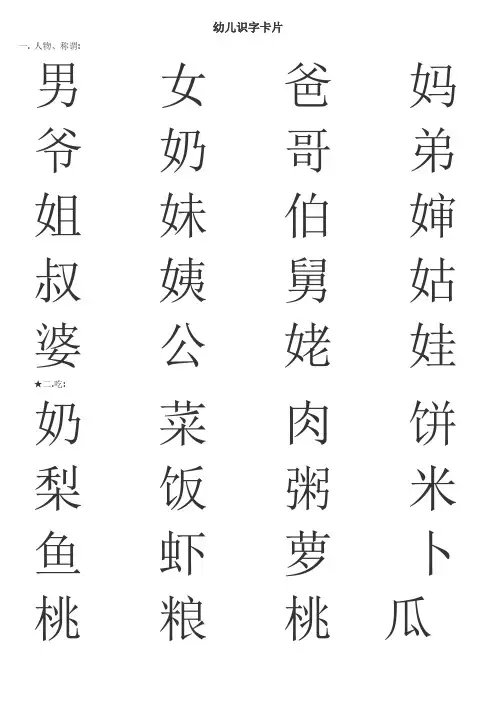 幼儿识字卡片
一. 人物、称谓:
男 女 爸 妈
爷 奶 哥 弟
姐 妹 伯 婶
叔 姨 舅 姑
婆 公 姥 娃
★二.吃:
奶 菜 肉 饼
梨 饭 粥 米
鱼 虾 萝 卜
桃 粮 桃 瓜